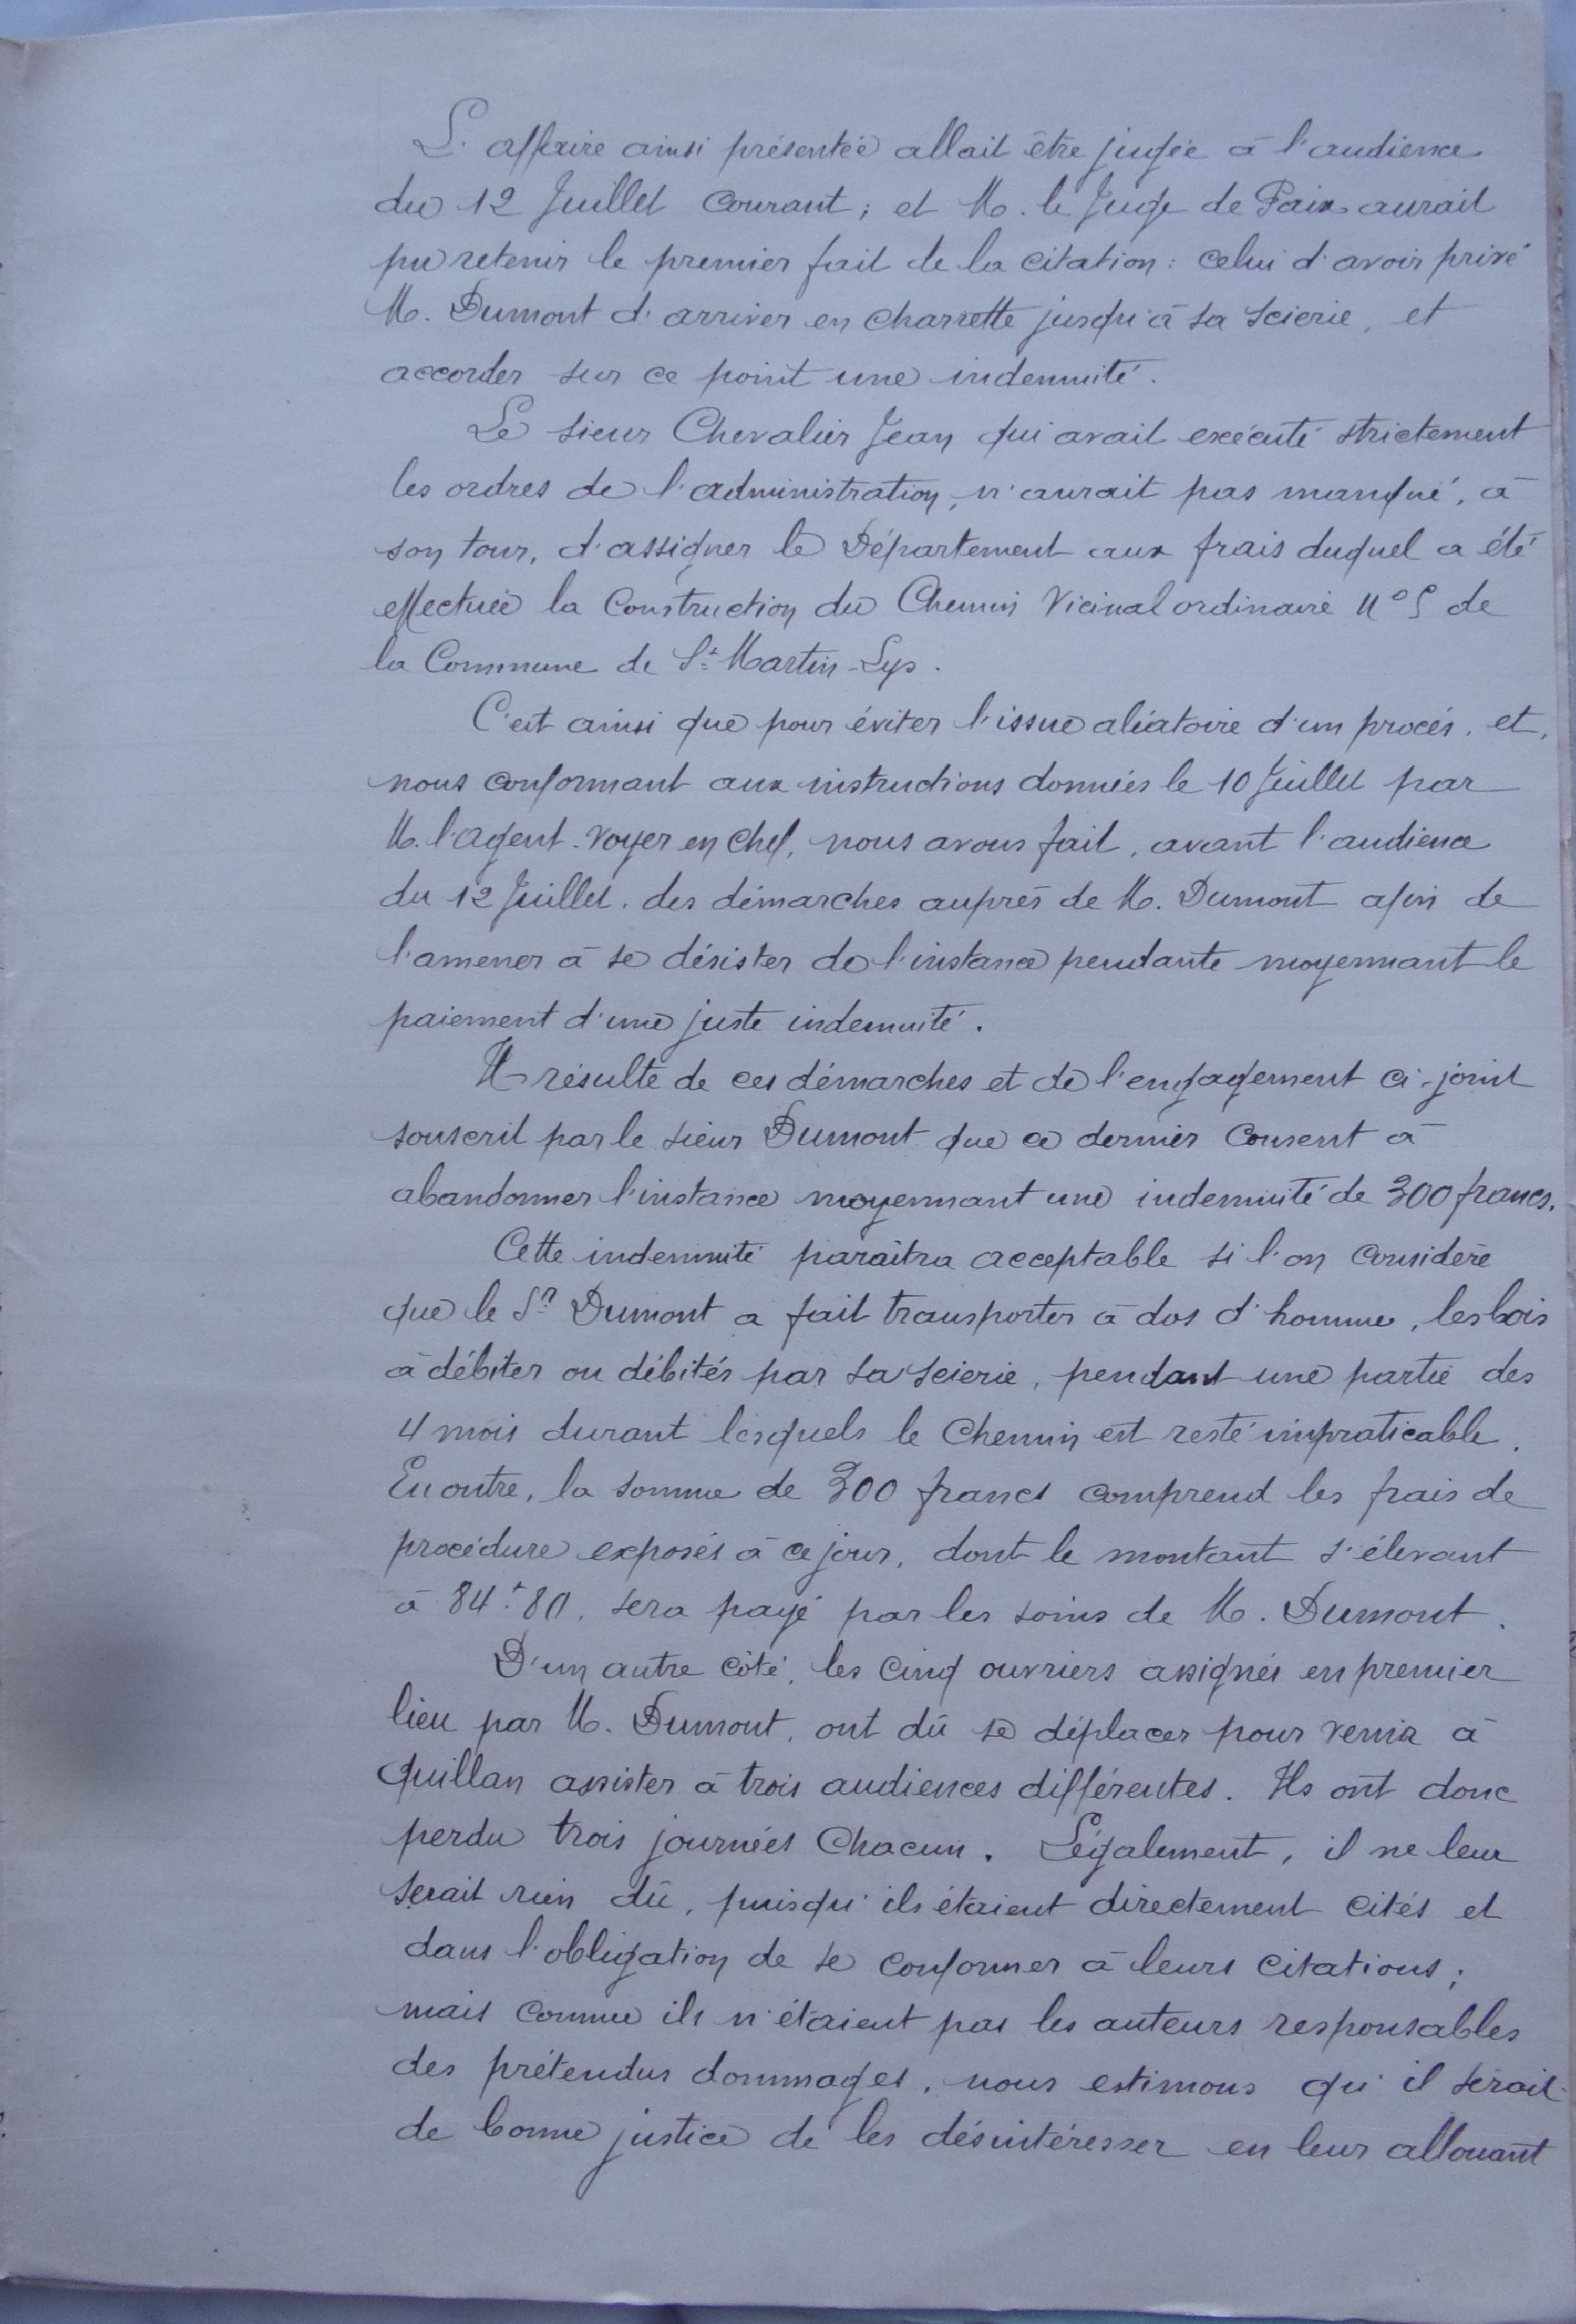 L'affaire ainsi présentée allait être jugée à l'audience
du 12 Juillet courant; et M. le Juge de Paix aurait
pu retenir le premier fait de la citation: celui d'avoir privé
M. Dumont d'arriver en charrette jusqu'à sa scierie, et
accorder sur ce point une indemnité.
Le sieur Chevalier Jean qui avait exécuté strictement
les ordres de l'administration, n'aurait pas manqué, à
son tour, d'assigner le Département aux frais duquel a été
effectuée la Construction du Chemin Vicinal ordinaire No 5 de
la Commune de St Martin-Lys.
C'est ainsi que pour éviter l'issue aléatoire d'un procès, et,
nous conformant aux instructions données le 10 Juillet par
M. l'agent-voyer en chef, nous avons fait, avant l'audience
du 12 Juillet, des démarches auprès de M. Dumont afin de
l'amener à se désister de l'instance pendante moyennant le
paiement d'une juste indemnité.
Il résulte de ces démarches et de l'engagement ci-joint
souscrit par le sieur Dumont que ce dernier consent à
abandonner l'instance moyennant une indemnité de 300 francs.
Cette indemnité paraîtra acceptable si l'on considère
que le Sr Dumont a fait transporter à dos d'homme, les bois
à débiter ou débités par sa scierie, pendant une partie des
4 mois durant lesquels le chemin est resté impraticable.
En outre, la somme de 300 francs comprend les frais de
procédure exposés à ce jour, dont le montant s'élevant
à 84f80, sera payé par les soins de M. Dumont.
D'un autre côté, les cinq ouvriers assignés en premier
lieu par M. Dumont, ont dû se déplacer pour venir à
Quillan assister à trois audiences différentes. Ils ont donc
perdu trois journées chacun. Légalement, il ne leur
serait rien dû, puisqu'ils étaient directement cités et
dans l'obligation de se conformer à leurs citations;
mais comme ils n'étaient pas les auteurs responsables
des prétendus dommages, nous estimons qu'il serait
de bonne justice de les désintéresser en leur allouant